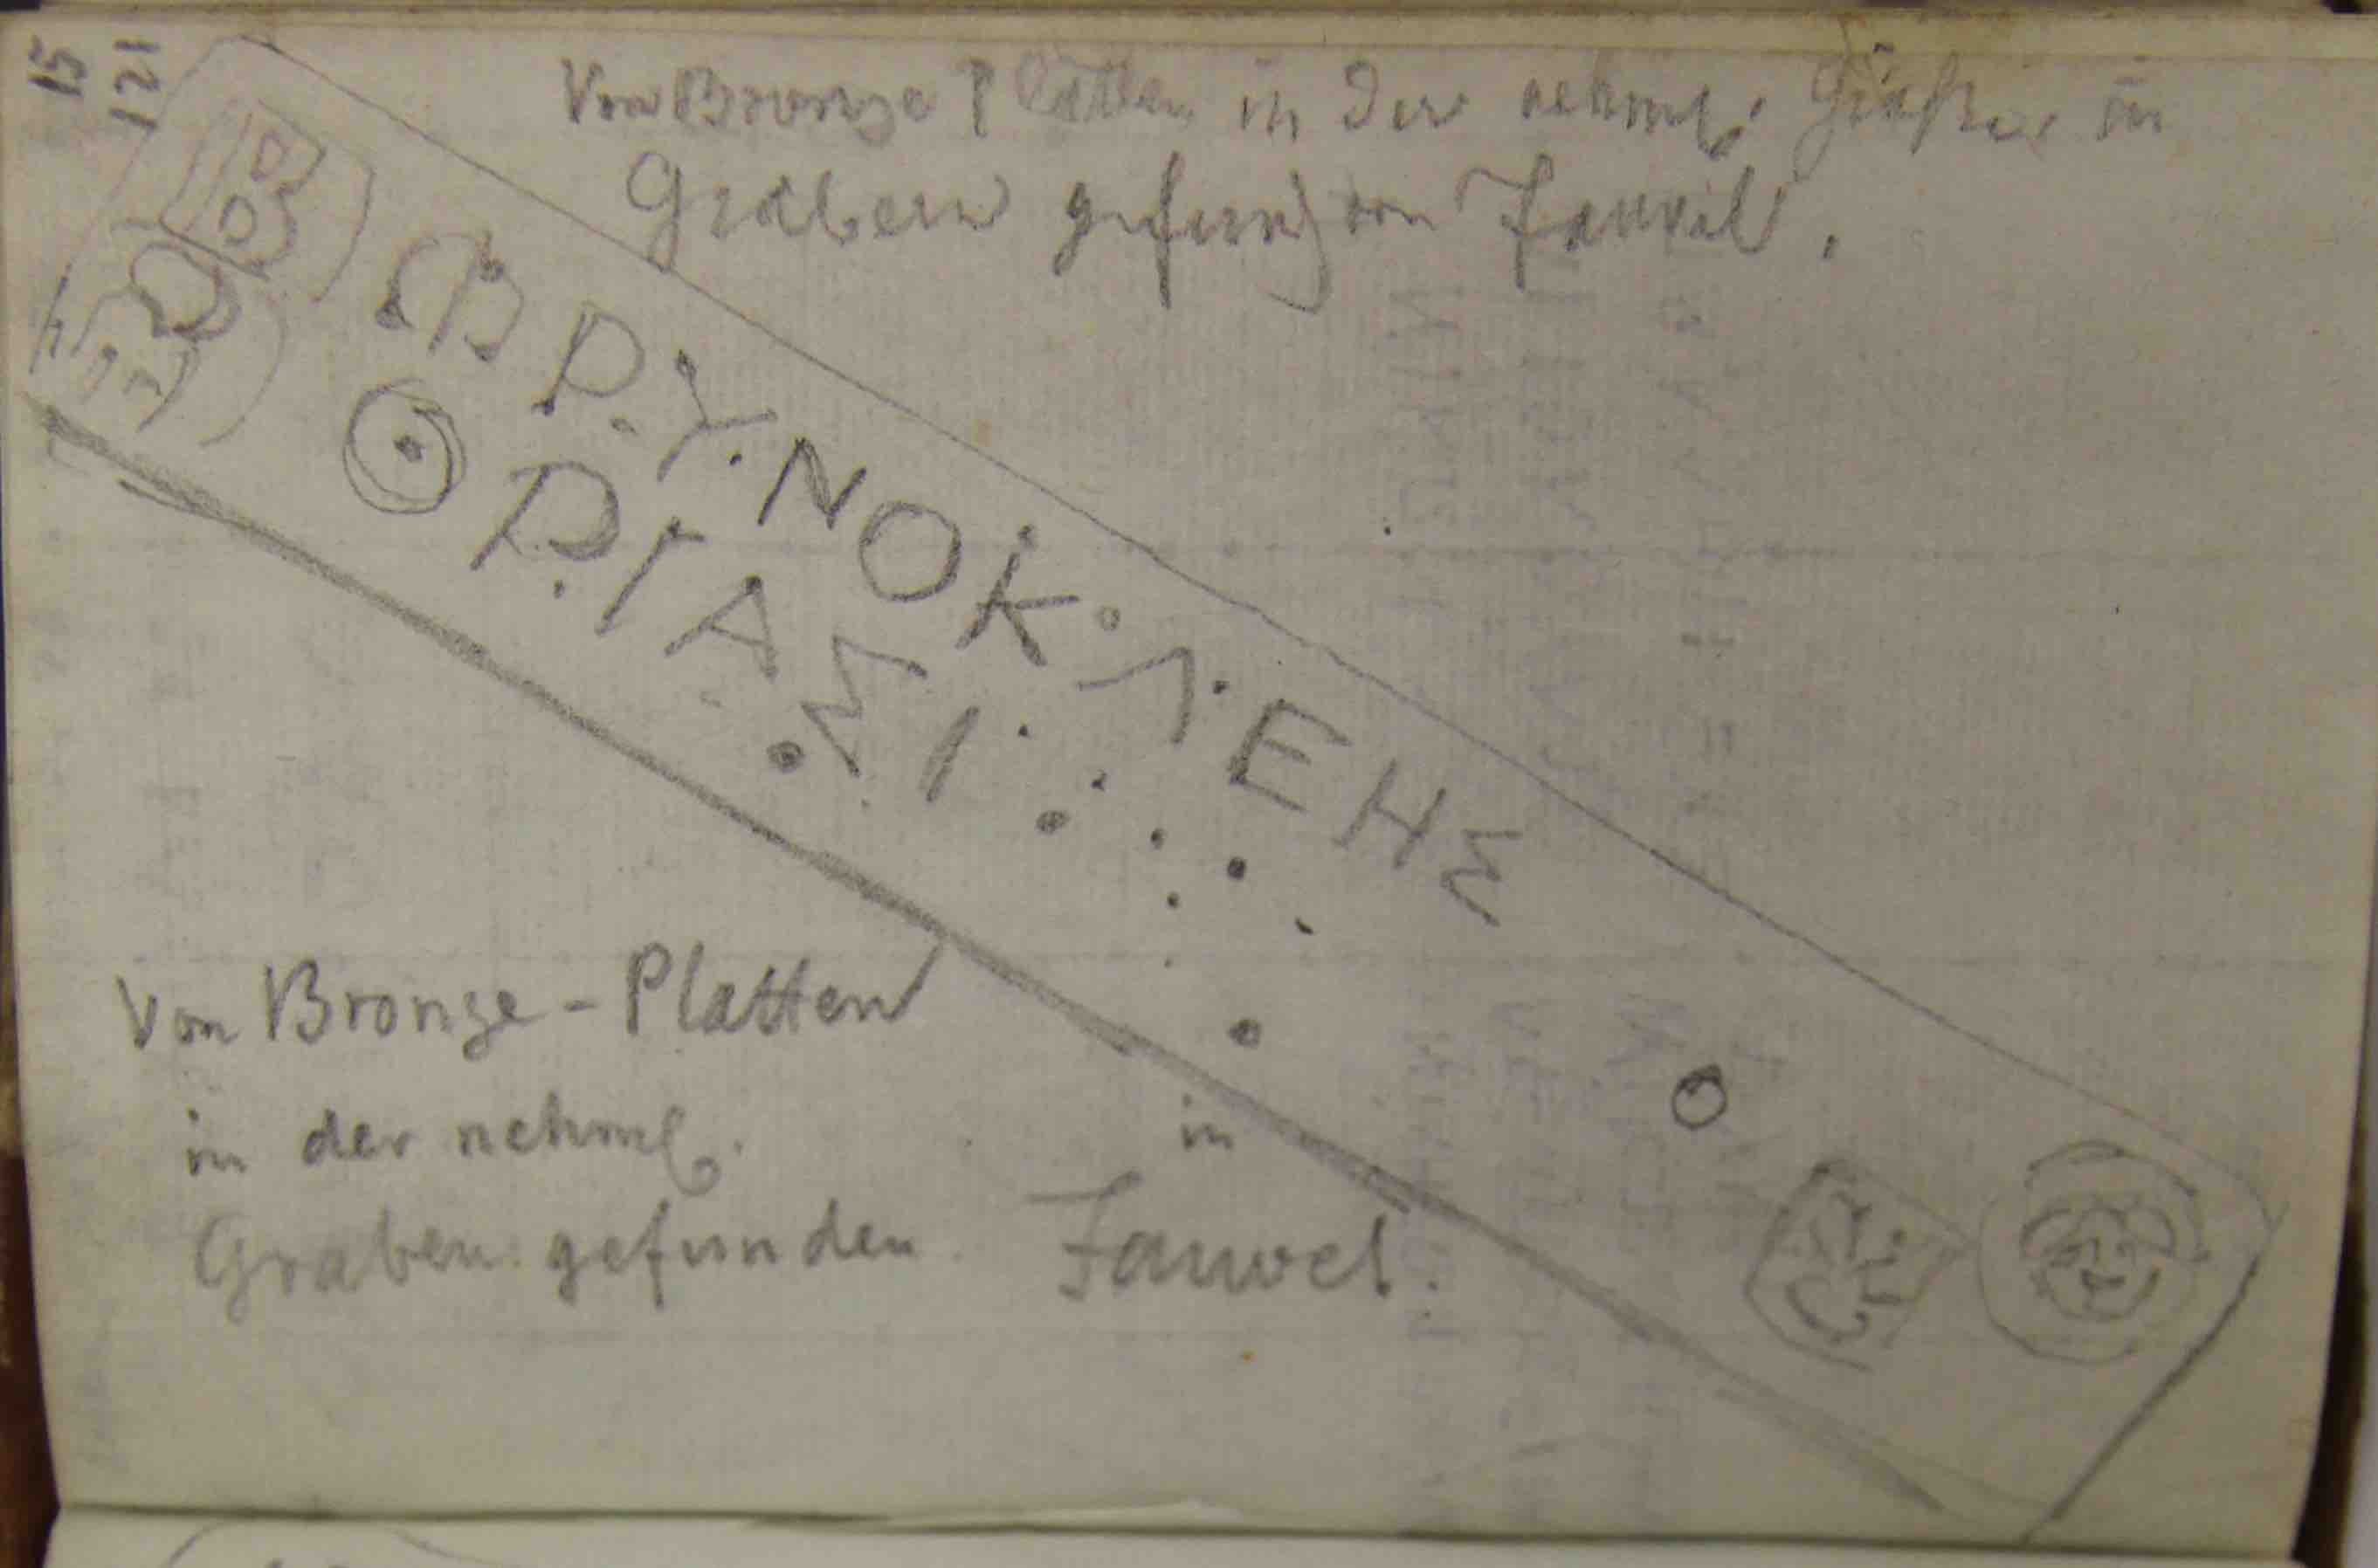 15
121
Von Bronze Platten in der nehml. Größe, in
Gräbern gefund von Fauvel.
ΦΡ.Υ.ΝΟΚ.Λ.ΕΗΣ
ΘΡΙΑΣΙ
Von Bronze-Platten
in der nehml. in
Graben gefunden Fauvel.